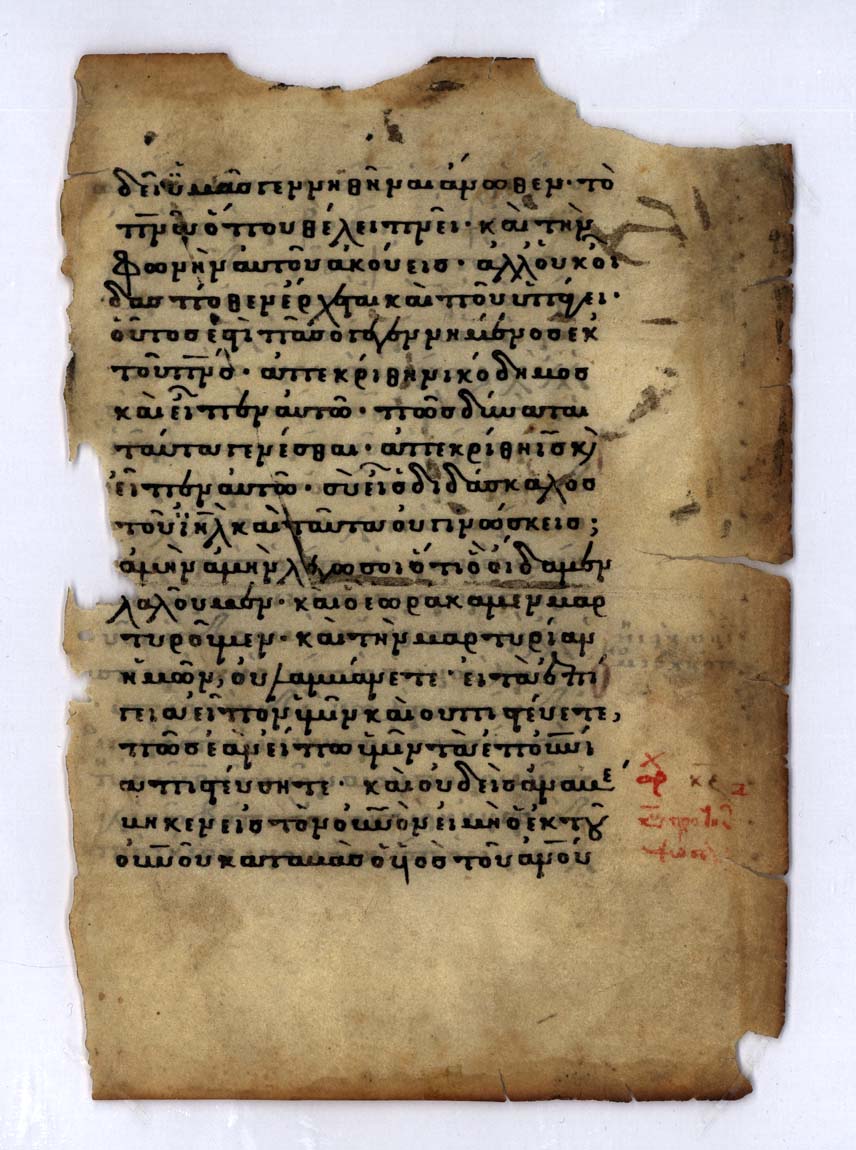 δεῖ ὑμᾶς γεννηθῆναι ἄνωθεν· τὸ
πνᾶ ὅπου θέλει πνεῖ· καὶ τὴν
φωνὴν αὐτοῦ ἀκούεις· ἀλλ' οὐκ οἶ
δας πόθεν ἔρχεται καὶ ποῦ ὑπάγει·
οὕτος ἐστὶ πᾶς ὁ γεγεννημένος ἐκ
τοῦ πνς· ἀπεκρίθη νικόδημος
καὶ εἶπεν αὐτῶ· πῶς δύναται
ταῦτα γενέσθαι· ἀπεκρίθη ις κὶ
εἶπεν αὐτῶ· σὺ εἶ ὁ διδάσκαλος
τοῦ ιηλ καὶ ταῦτα οὐ γινώσκεις;
ἀμὴν ἀμὴν λέγω σοι ὅτι ὃ οἴδαμεν
λαλοῦμεν· καὶ ὃ ἑωράκαμεν μαρ
τυροῦμεν· καὶ τὴν μαρτυρίαν
ἡμῶν, οὐ λαμβάνετε· εἰ τὰ ἐπί
γεια εἶπον ὑμῖν καὶ οὐ πιστεύετε,
πῶς ἐὰν εἴπω ὑμῖν τὰ ἐπουνί
α πιστεύσητε· καὶ οὐδεὶς ἀναβέ
βηκεν εἰς τὸν οὐνὸν εἰ μὴ ὁ ἐκ τοῦ
οὐνοῦ καταβὰς ὁ υἱὸς τοῦ ἀνοῦ